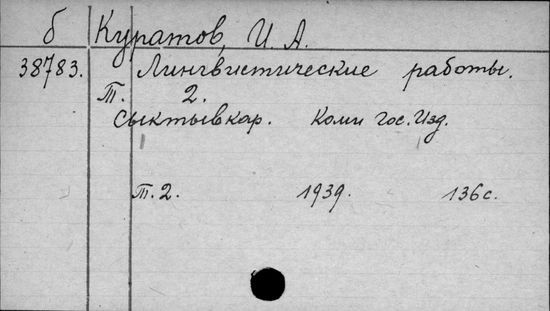 б Куратов, И. А.
38783. Лингвистические работы.
Т. 2.
Сыктывкар. Коми Гос. Изд.
Т. 2. 1939. 136 с.